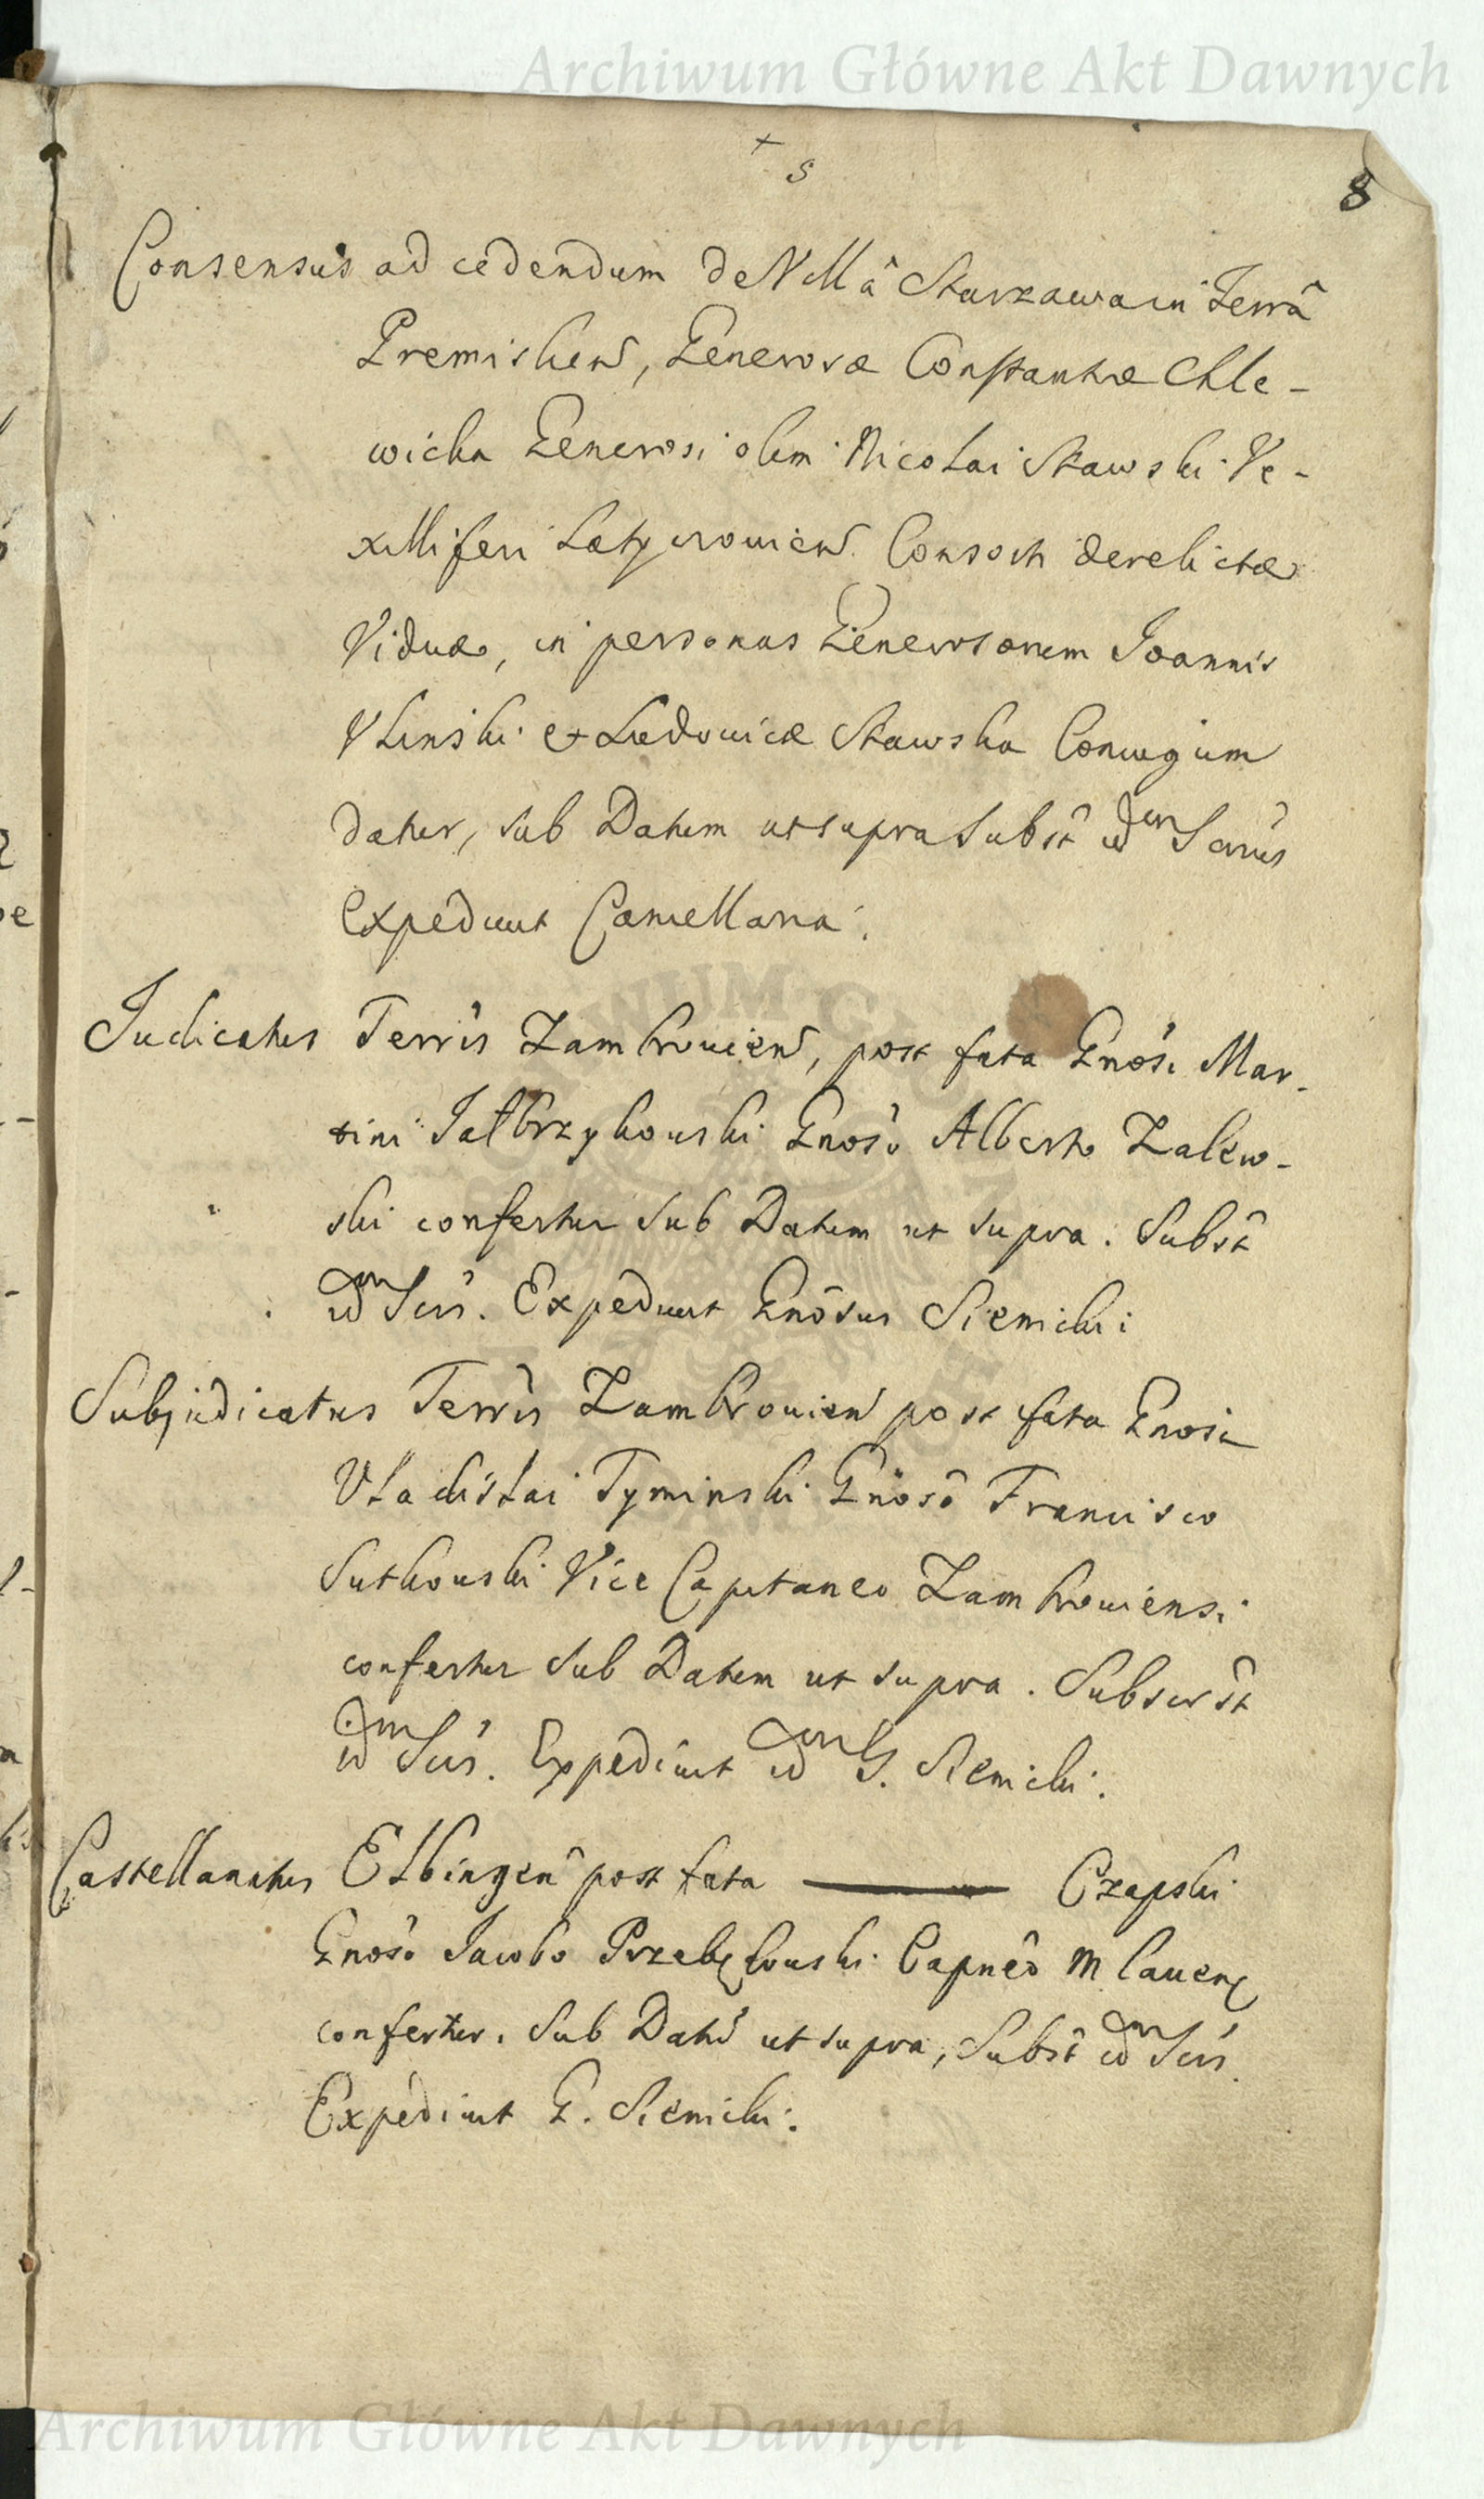 Archiwum Główne Akt Dawnych
+ S
8
Consensus ad cedendum de Villâ Starzawa in Terrâ
Premislien, Generosæ Constantiæ Chle-
wicka Generosi olim Nicolai Stawski Ve-
xilliferi Latyczovien. Consorti derelictæ
Viduæ, in personas Generosorum Joannis
Vlinski & Ludovicæ Stawska Coniugum
datur, sub Datum ut supra Subst̂ idem Scrius
Expediuit Cancellaria.
Judicatus Terris Zambrovien, post fata Gnosi Mar-
tini Jałbrzykowski Gnoso Alberto Zalew-
ski confertur sub Datum ut supra. Subst̂
idem Scis. Expediuit Gnosus Sienicki:
Subjudicatus Terris Zambrovien post fata Gnosi
Vladislai Tyminski Gnoso Francisco
Sutkowski Vice Capitaneo Zambroviensi
confertur sub Datum ut supra. Subscrst̂
idem Scis. Expediuit idem G. Sienicki.
Castellanatus Elbingen post fata ——— Czapski
Gnoso Jacobo Przebędowski Capneo Mlaven
confertur. Sub Dato ut supra, Subst̂ idem Scis.
Expediuit G. Sienicki.
Archiwum Główne Akt Dawnych